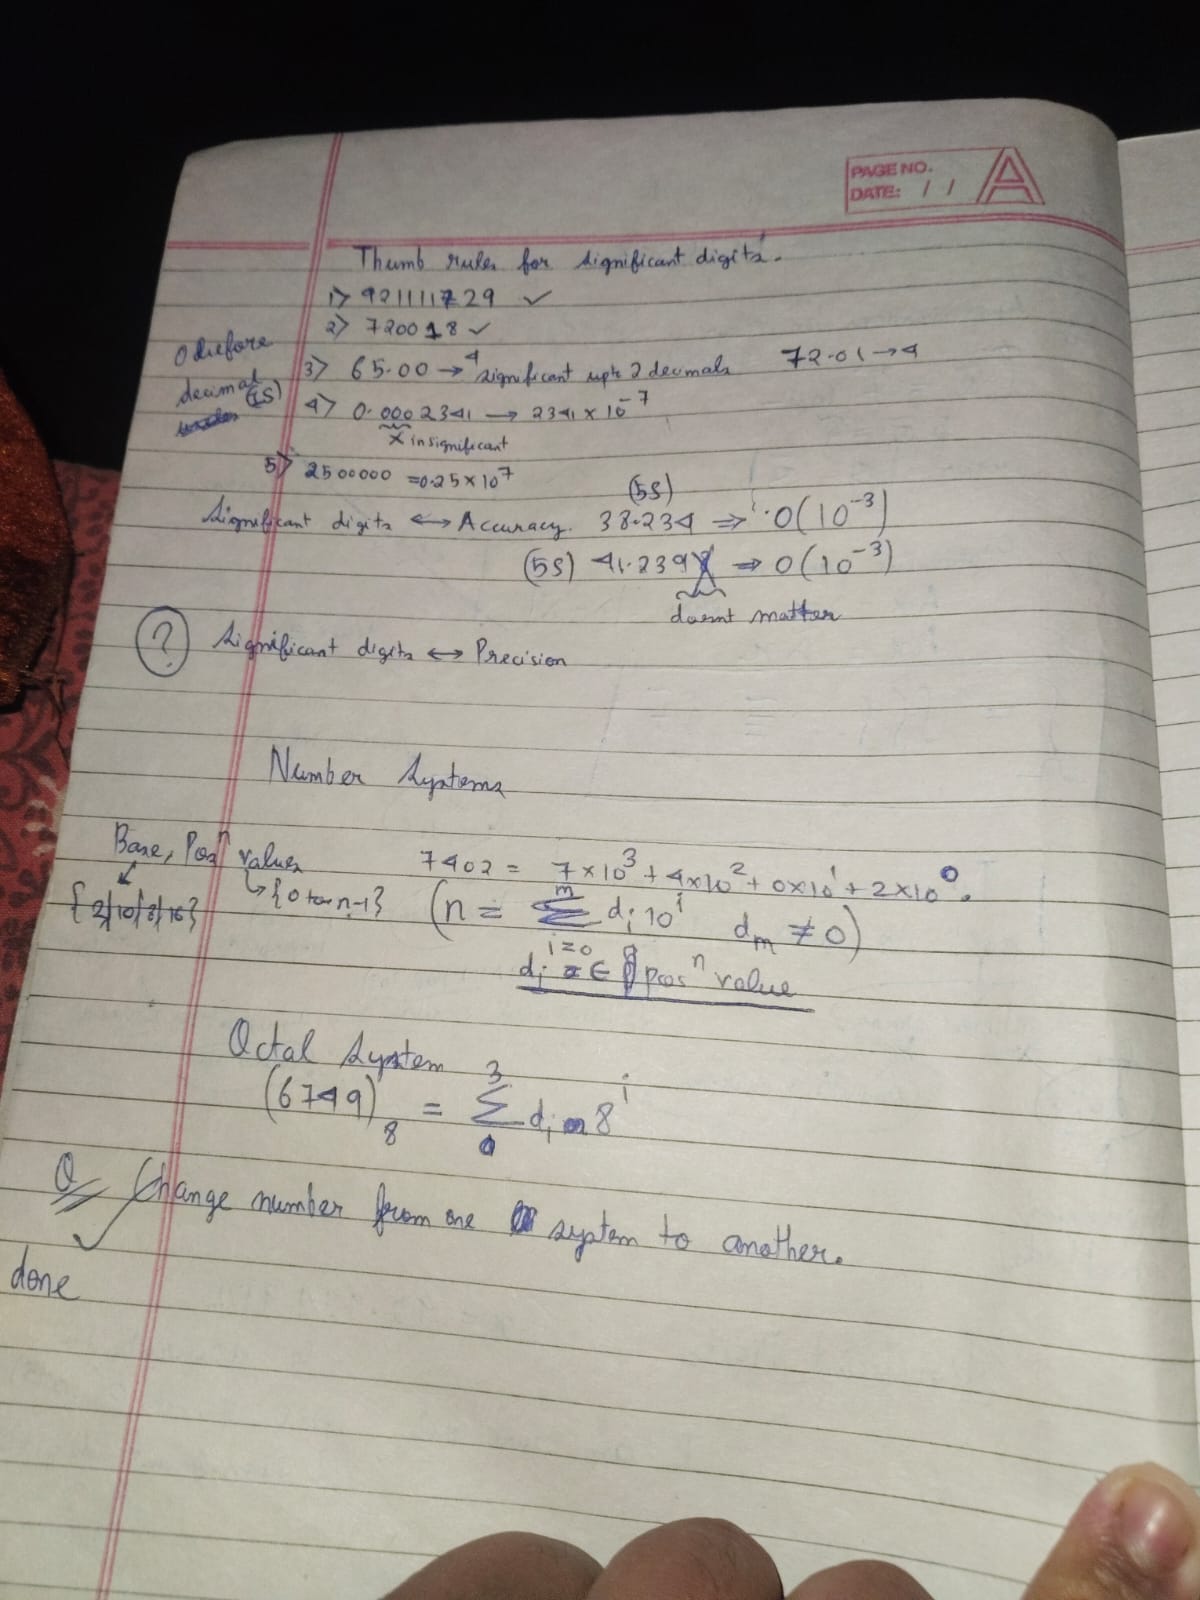 PAGE NO.
DATE: / /
A
Thumb rules for significant digits.
1> 921111729 ✓
2> 720018 ✓
0 before
decimal (IS)
3> 65.00 → 4 significant upto 2 decimals 72.01 → 4
4> 0.0002341 → 2341 × 10⁻⁷
X insignificant
5> 2500000 = 0.25 × 10⁷
(5S)
Significant digits ↔ Accuracy. 38.234 ⇒ O(10⁻³)
(5S) 41.239 ⇒ O(10⁻³)
doesnt matter
? Significant digits ↔ Precision
Number Systems
Base, Posⁿ values
7402 = 7×10³ + 4×10² + 0×10¹ + 2×10⁰.
{2/10/8/16} ↳ {0 to n-1}
(n = Σ_{i=0}^{m} dᵢ 10ⁱ dₘ ≠ 0)
dᵢ ∈ posⁿ value
Octal System
(6749)₈ = Σ_{0}^{3} dᵢ 8ⁱ
Q Change number from one system to another.
✓
done